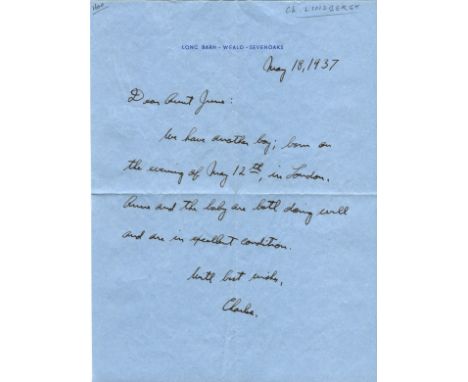 Ch LINDBERGH
LONG BARN - WEALD - SEVENOAKS
May 18, 1937
Dear Aunt June:
We have another boy; born on
the evening of May 12th, in London.
Anne and the baby are both doing well
and are in excellent condition.
With best wishes,
Charles.